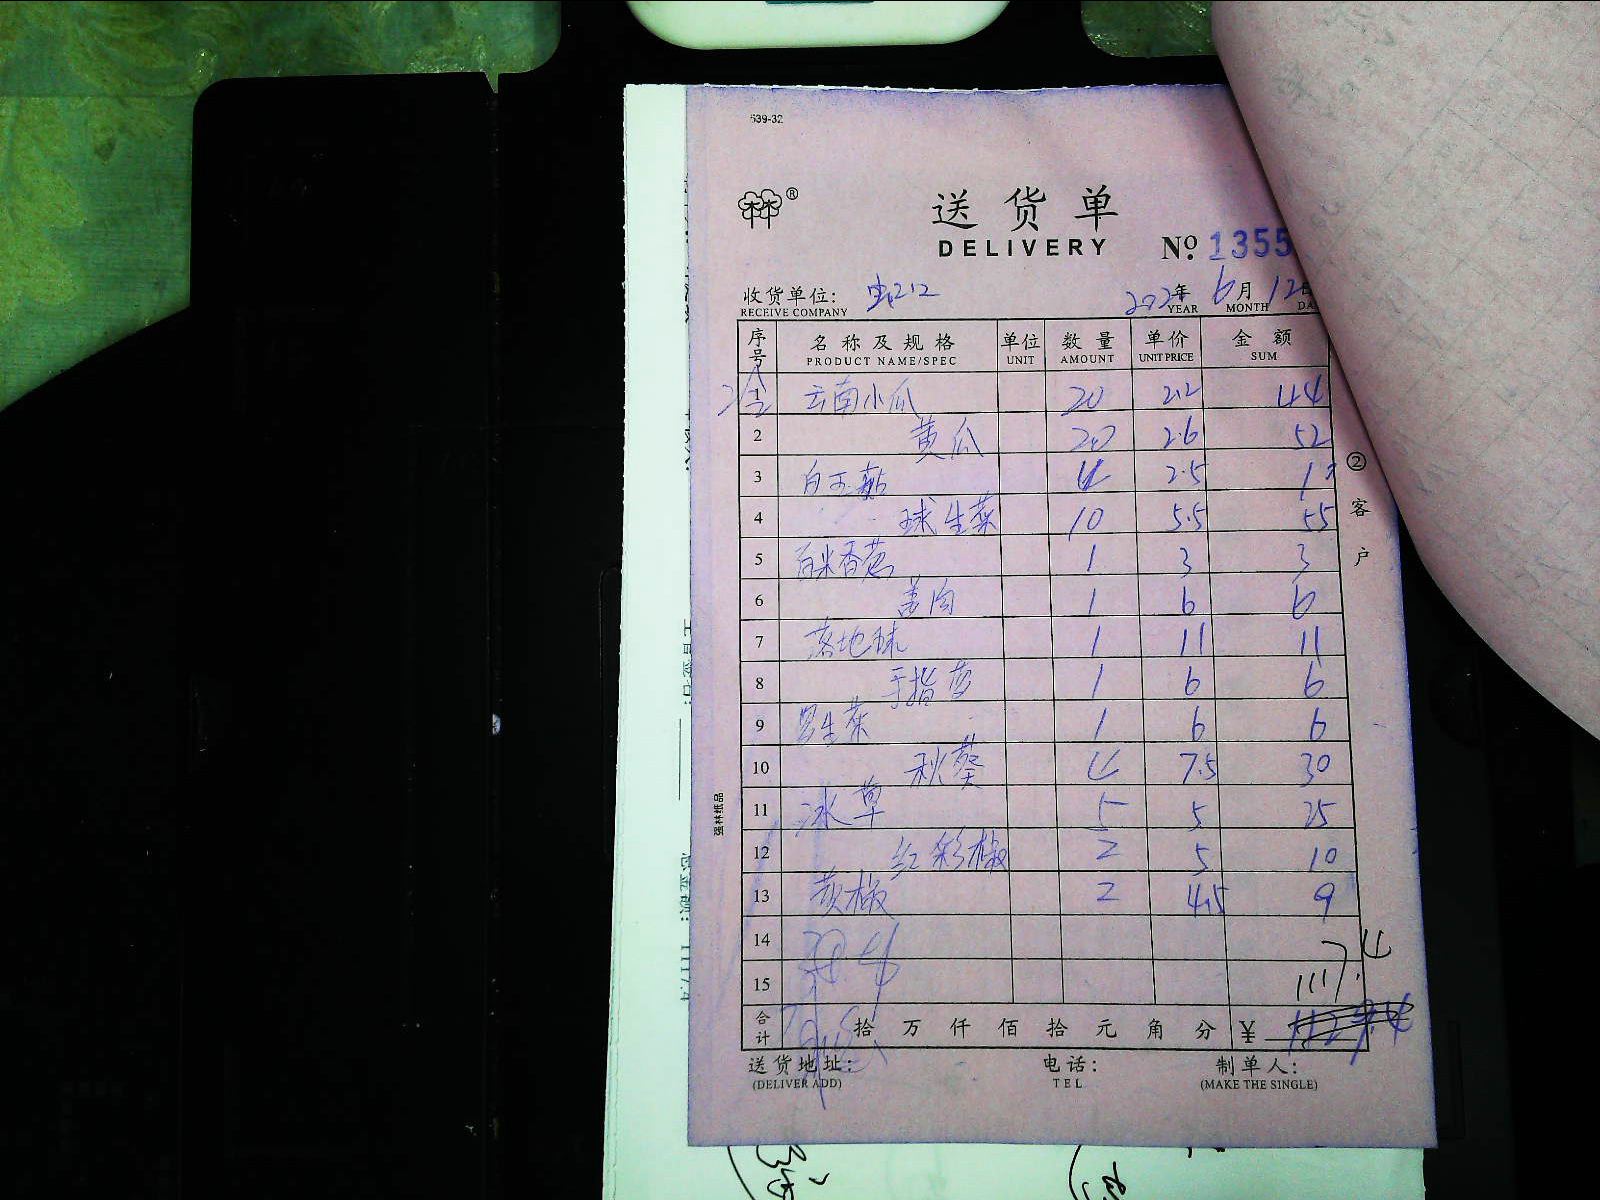 639-32
送货单
DELIVERY
№ 1355
收货单位: 212 年 6月 12日
RECEIVE COMPANY YEAR MONTH DA
序号 名称及规格 单位 数量 单价 金额
PRODUCT NAME/SPEC UNIT AMOUNT UNIT PRICE SUM
1 云南小瓜 20 2.2 44
2 黄瓜 20 2.6 52
3 白玉菇 4 2.5 10
4 球生菜 10 5.5 55
5 香葱 1 3 3
6 肉 1 6 6
7 落地球 1 11 11
8 手指 1 6 6
9 生菜 1 6 6
10 秋葵 4 7.5 30
11 冰草 5 5 25
12 红彩椒 2 5 10
13 黄椒 2 4.5 9
14
15 1117.4
合计 拾万仟佰拾元角分 ¥
送货地址: 电话: 制单人:
(DELIVER ADD) TEL (MAKE THE SINGLE)
②客户
强林纸品
1117.4